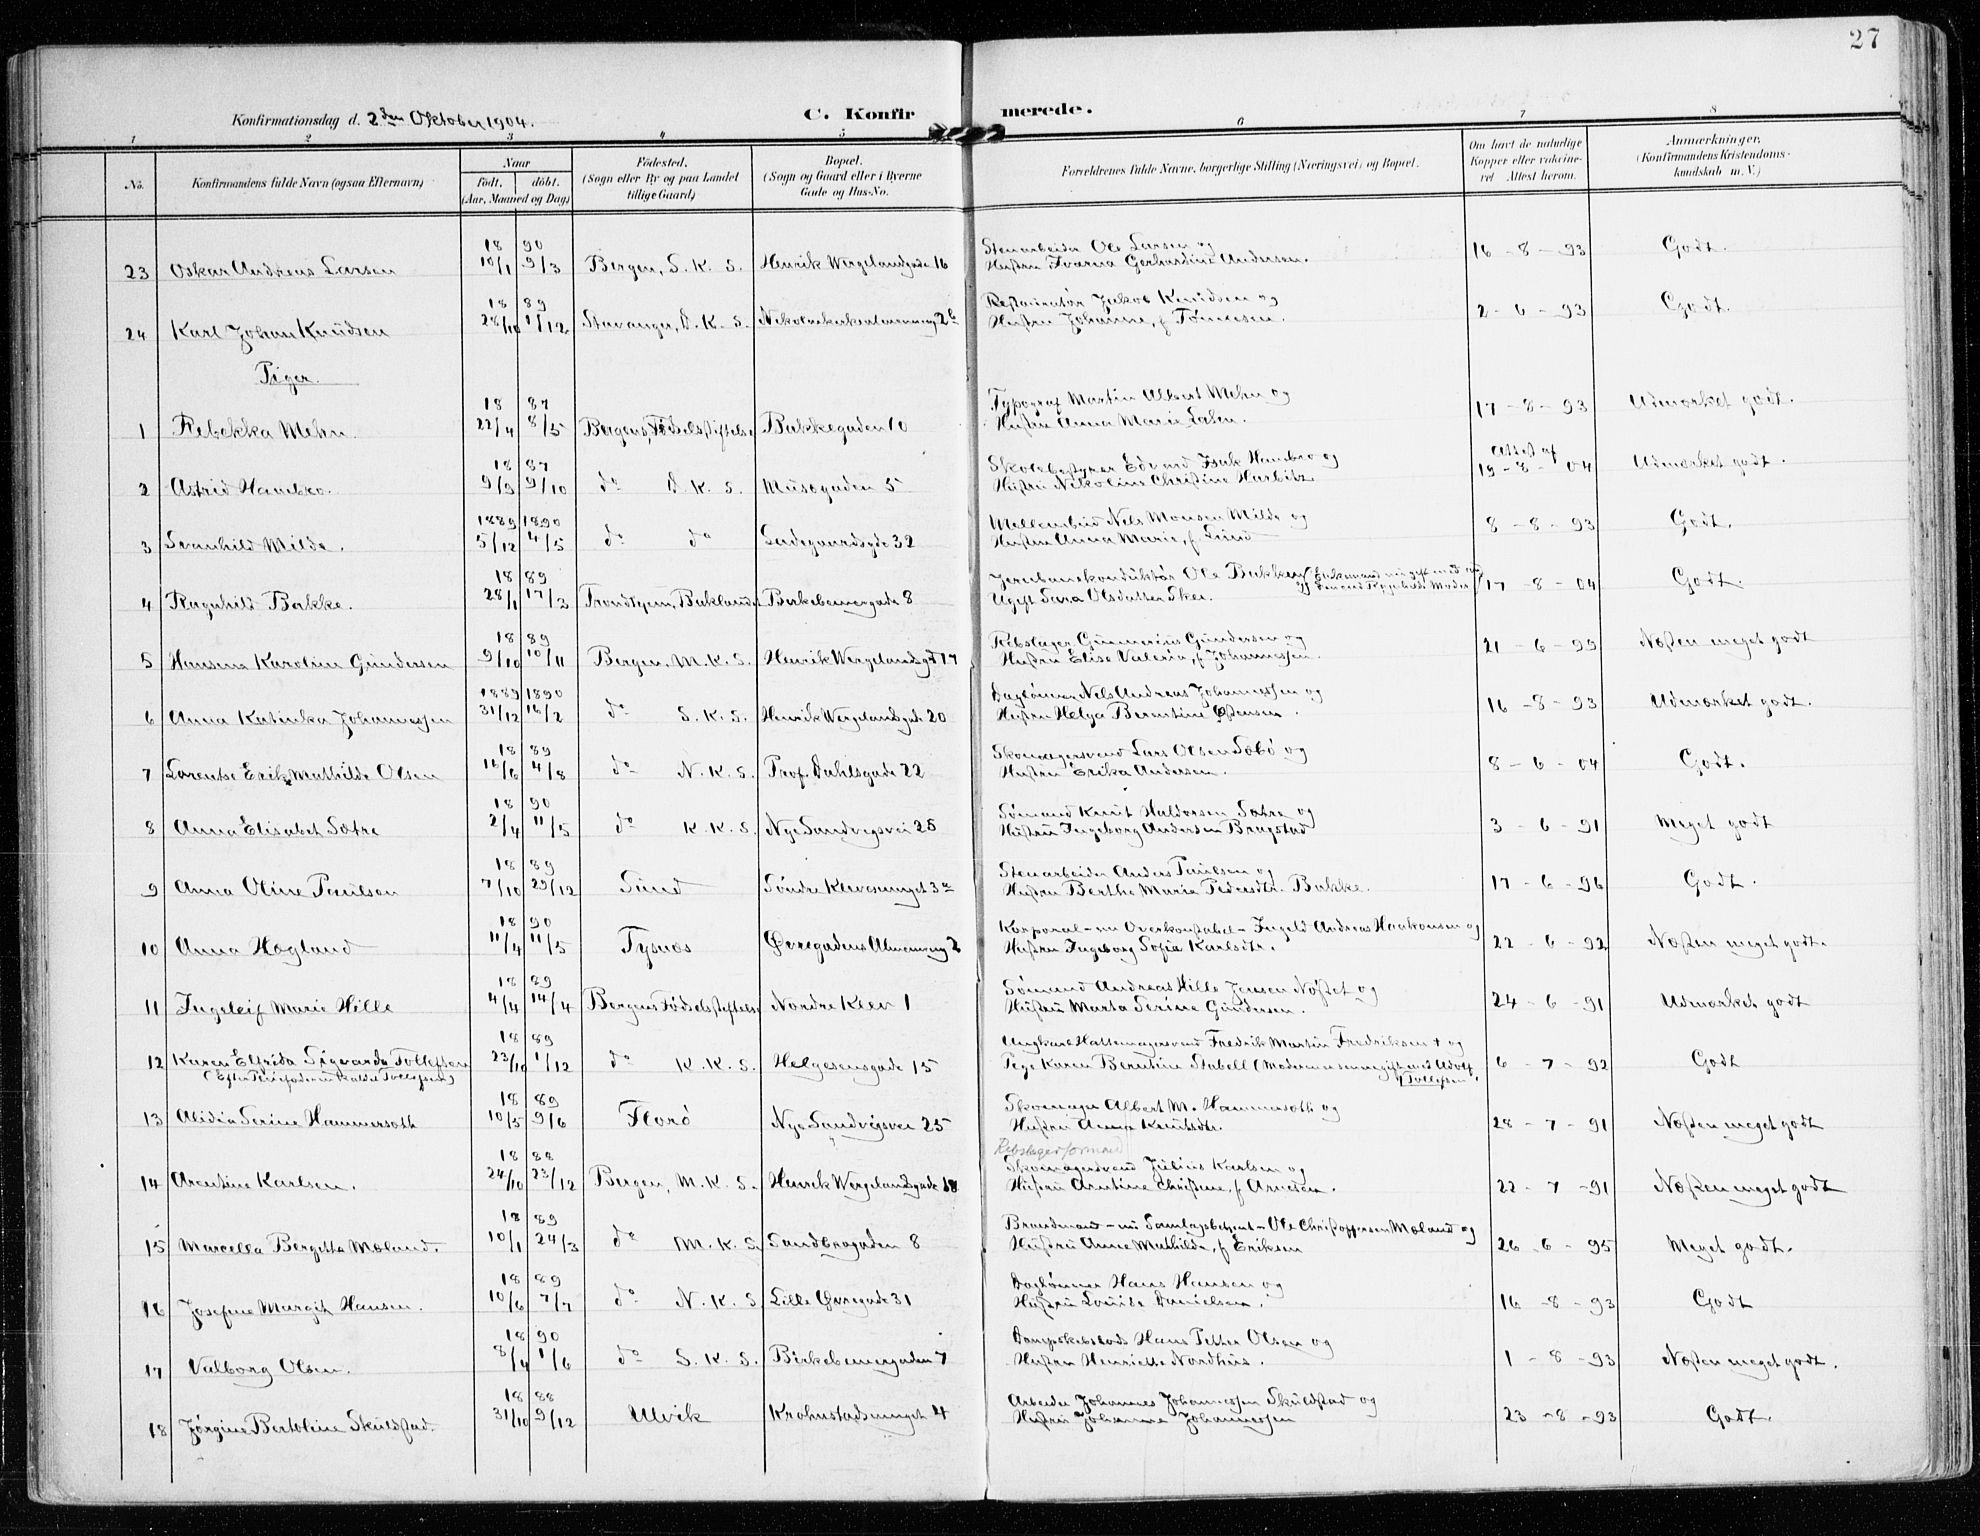 27
Konfirmationsdag d. 2den Oktober 1904.
C. Konfirmerede.
1 2 3 4 5 6 7 8
No.
Konfirmandens fulde Navn (ogsaa Efternavn)
Naar
født. døbt.
(Aar, Maaned og Dag)
Fødested.
(Sogn eller By og paa Landet
tillige Gaard)
Bopæl.
(Sogn og Gaard eller i Byerne
Gade og Hus-No.
Forældrenes fulde Navne, borgerlige Stilling (Næringsvei) og Bopæl.
Om havt de naturlige
Kopper eller vakcine-
ret Attest herom.
Anmærkninger.
(Konfirmandens Kristendoms-
kundskab m. V.)
18 90 Stenarbeider Ole Larsen og
23 Oskar Andreas Larsen 10/1 9/3 Bergen, S. K. S. Henrik Wergelandgade 16 Hustru Gerhardine Andersen. 16-8-93 Godt.
18 89 Restauratør Jakob Knudsen og
24 Karl Johan Knudsen 28/10 1/12 Stavanger, D. K. S. Nikolaikirkealmenning 2b Hustru Johanne, f Tönnesen. 2-6-93 Godt.
Piger.
18 87 Typograf Martin Albert Mehn og
1 Rebekka Mehn 22/4 8/5 Bergens Fødselsstiftelse Bakkegaden 10 Hustru Anna Marie Larsen. 17-8-93 Udmærket godt.
18 87 Skolebestyrer Edvard Isak Hambro og Attest af
2 Astrid Hambro. 9/9 9/10 do D. K. S. Musegaden 5 Hustru Nikoline Christine Harbitz 19-8-04 Udmærket godt.
1889 1890 Nels Monsen Milde og
3 Svanhild Milde. 5/12 4/5 do do Ladegaardsgde 32 Hustru Anna Marie, f Lund 8-8-93 Godt.
18 89 Jernbanekonduktør Ole Bakken
4 Ragnhild Bakke. 28/1 17/3 Trondhjem, Baklandet Birkebeinergade 8 Ugift Sara Olsdatter Skei. 17-8-04 Godt.
18 89 Rebslager Gunnerius Gundersen og
5 Hansine Karoline Gundersen 9/10 10/11 Bergen, M. K. S. Henrik Wergelandsgd 17 Hustru Elise Valeria, f Johannessen. 21-6-99 Næsten meget godt
1889 1890 Dagløner Nels Andreas Johannessen og
6 Anna Katinka Johannessen 31/12 16/2 do S. K. S. Henrik Wergelandsgade 20 Hustru Helga Berentine Østensen. 16-8-93 Udmærket godt.
18 89 Skomagersvend Lars Olsen Søbø og
7 Lorentse Erik Mathilde Olsen 16/6 4/8 do N. K. S. Prof. Dahlsgade 22 Hustru Erika Andersen. 8-6-04 Godt.
18 90 Sømand Knut Haldorsen Sætre og
8 Anna Elisabet Sætre 2/4 11/5 do K. K. S. Nye Sandvigsvei 25 Hustru Ingeborg Andersen Brugstad 3-6-91 Meget godt
18 89 Stenarbeider Anders Paulsen og
9 Anna Oline Paulsen 7/10 29/12 Sund Søndre Klevesmuget 3a Hustru Berthe Marie Pedersdtr. Bakke. 17-6-96 Godt.
18 90 Korporal - nu Overkonstabel - Ingeld Andreas Haakonsen og
10 Anna Hegland 11/4 11/5 Tysnæs Øvregadens Almenning 2 Hustru Ingeborg Sofie Karlsdtr. 22-6-92 Næsten meget godt.
18 89 Sømand Andreas Hille Jensen Nøstet og
11 Ingeleif Marie Hille 4/4 14/4 Bergens Fødselsstiftelse Nordre Klev 1 Hustru Marta Serine Gundersen. 24-6-91 Udmærket godt
18 89 Ungkarl Hattemagersvend Fredrik Martin Fredriksen + og
12 Karen Elfrida Sigvarda Tollefsen 23/10 1/12 do K. K. S. Helgesensgade 15 Pige Karen Berntine Stabell (Moderen senere gift med Adolf 6-7-92 Godt
(Efter Pleiefaderen kaldet Tollefsen) Tollefsen)
18 89 Skomager Albert M. Hammersøth og
13 Alida Serine Hammersøth 10/5 9/6 Florø Nye Sandvigsvei 25 Hustru Anna Knutsdtr. 28-7-91 Næsten meget godt
Rebslagerformand
18 88 Skomagersvend Julius Karlsen og
14 Arentine Karlsen. 24/10 23/12 Bergen, M. K. S. Henrik Wergelandsgade 18 Hustru Arntine Christine, f Arnesen. 22-7-91 Næsten meget godt
18 89 Brandmand - nu Samlagsbetjent - Ole Christoffersen Mæland og
15 Marcella Bergitha Mæland. 10/1 24/3 do M. K. S. Sandbrogaden 8 Hustru Anne Mathilde, f Eriksen 26-6-95 Meget godt.
18 89 Dagløner Hans Hansen og
16 Josefine Margit Hansen. 10/6 7/7 do N. K. S Lille Øvregade 31 Hustru Louise Danielsen. 16-8-93 Godt
18 90 Hans Petter Olsen og
17 Valborg Olsen. 8/4 1/6 do S. K. S. Birkebeinergaden 7 Hustru Henriette Nordhus. 1-8-93 Næsten meget godt.
18 88 Arbeider Johannes Johannessen Skuldstad og
18 Jørgine Bertoline Skulstad. 31/10 9/12 Ulvik Krohnstadsmuget 4 Hustru Johanne Johannessen 23-8-93 Godt.